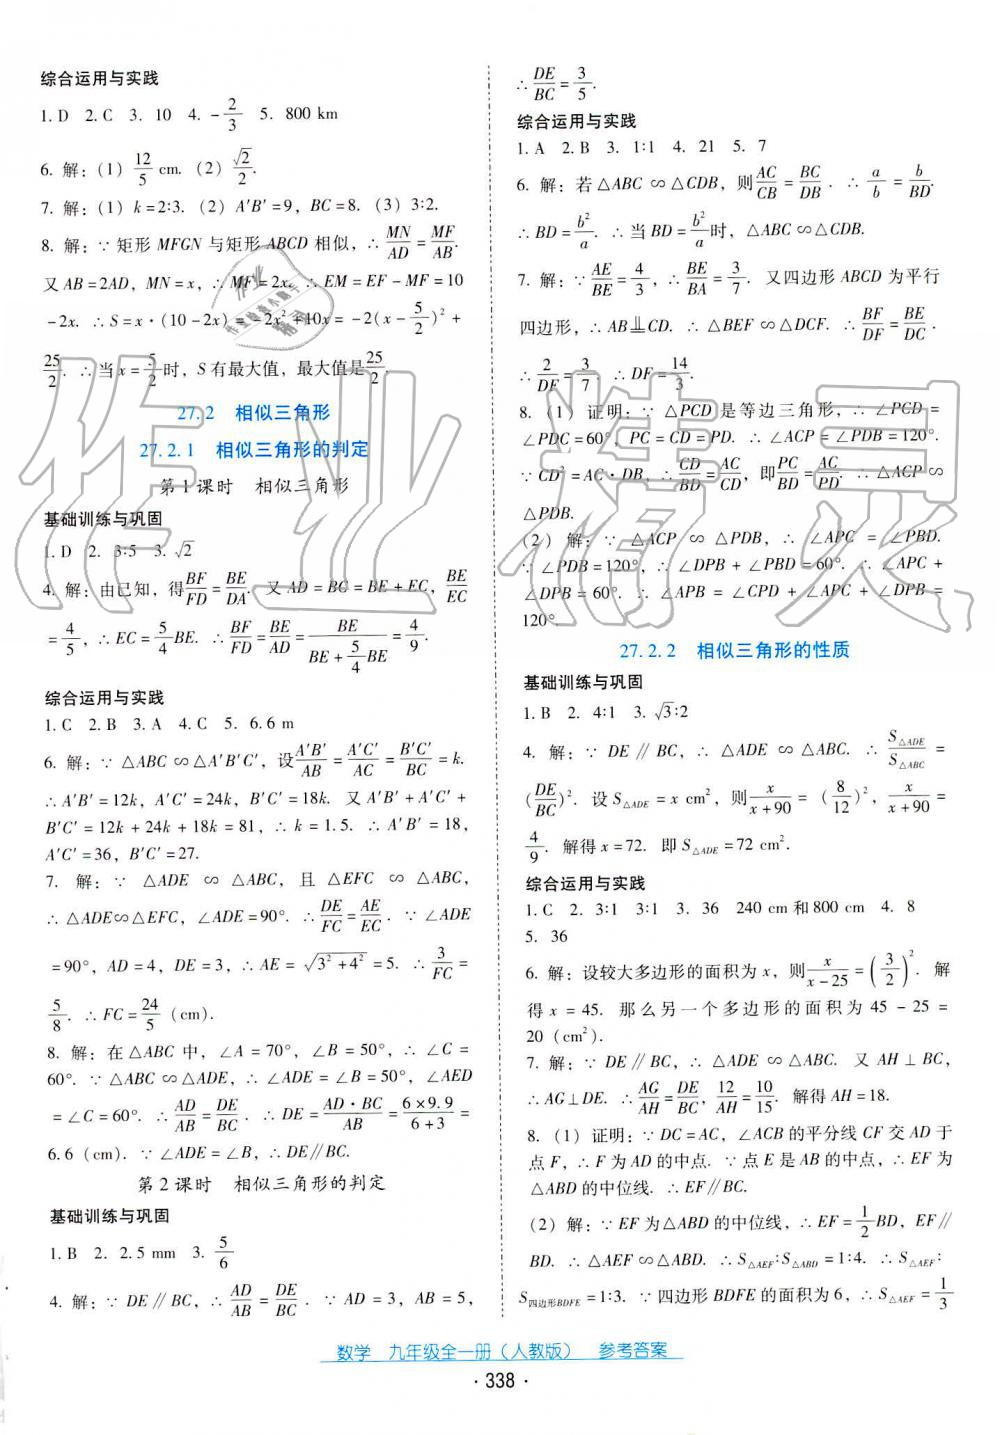 综合运用与实践
1. D  2. C  3. 10  4. -2/3  5. 800 km
6. 解：(1) 12/5 cm. (2) √2/2.
7. 解：(1) k=2∶3. (2) A′B′=9，BC=8. (3) 3∶2.
8. 解：∵矩形 MFGN 与矩形 ABCD 相似，∴MN/AD=MF/AB.
又 AB=2AD，MN=x，∴MF=2x. ∴EM=EF-MF=10
-2x. ∴S=x·(10-2x)=-2x²+10x=-2(x-5/2)²+
25/2. ∴当 x=5/2 时，S 有最大值，最大值是 25/2.
27.2 相似三角形
27.2.1 相似三角形的判定
第 1 课时 相似三角形
基础训练与巩固
1. D  2. 3∶5  3. √2
4. 解：由已知，得 BF/FD=BE/DA. 又 AD=BC=BE+EC，BE/EC
=4/5，∴EC=5/4 BE. ∴BF/FD=BE/AD=BE/(BE+5/4 BE)=4/9.
综合运用与实践
1. C  2. B  3. A  4. C  5. 6.6 m
6. 解：∵△ABC∽△A′B′C′，设 A′B′/AB=A′C′/AC=B′C′/BC=k.
∴A′B′=12k，A′C′=24k，B′C′=18k. 又 A′B′+A′C′+
B′C′=12k+24k+18k=81，∴k=1.5. ∴A′B′=18，
A′C′=36，B′C′=27.
7. 解：∵△ADE∽△ABC，且△EFC∽△ABC，
∴△ADE∽△EFC，∠ADE=90°. ∴DE/FC=AE/EC. ∵∠ADE
=90°，AD=4，DE=3，∴AE=√(3²+4²)=5. ∴3/FC=
5/8. ∴FC=24/5 (cm).
8. 解：在△ABC 中，∠A=70°，∠B=50°，∴∠C=
60°. ∵△ABC∽△ADE，∴∠ADE=∠B=50°，∠AED
=∠C=60°. ∴AD/AB=DE/BC. ∴DE=AD·BC/AB=6×9.9/(6+3)=
6.6 (cm). ∵∠ADE=∠B，∴DE∥BC.
第 2 课时 相似三角形的判定
基础训练与巩固
1. B  2. 2.5 mm  3. 5/6
4. 解：∵DE∥BC，∴AD/AB=DE/BC. ∵AD=3，AB=5，
∴DE/BC=3/5.
综合运用与实践
1. A  2. B  3. 1∶1  4. 21  5. 7
6. 解：若△ABC∽△CDB，则 AC/CB=BC/DB. ∴a/b=b/BD.
∴BD=b²/a. ∴当 BD=b²/a 时，△ABC∽△CDB.
7. 解：∵AE/BE=4/3，∴BE/BA=3/7. 又四边形 ABCD 为平行
四边形，∴AB∥CD. ∴△BEF∽△DCF. ∴BF/DF=BE/DC.
∴2/DF=3/7，∴DF=14/3.
8. (1) 证明：∵△PCD 是等边三角形，∴∠PCD=
∠PDC=60°，PC=CD=PD. ∴∠ACP=∠PDB=120°.
∵CD²=AC·DB，∴CD/BD=AC/CD，即 PC/BD=AC/PD. ∴△ACP∽
△PDB.
(2) 解：∵△ACP∽△PDB，∴∠APC=∠PBD.
∵∠PDB=120°，∴∠DPB+∠PBD=60°. ∴∠APC+
∠DPB=60°. ∴∠APB=∠CPD+∠APC+∠DPB=
120°.
27.2.2 相似三角形的性质
基础训练与巩固
1. B  2. 4∶1  3. √3∶2
4. 解：∵DE∥BC，∴△ADE∽△ABC. ∴S△ADE/S△ABC=
(DE/BC)². 设 S△ADE=x cm²，则 x/(x+90)=(8/12)²，x/(x+90)=
4/9. 解得 x=72. 即 S△ADE=72 cm².
综合运用与实践
1. C  2. 3∶1  3∶1  3. 36  240 cm 和 800 cm  4. 8
5. 36
6. 解：设较大多边形的面积为 x，则 x/(x-25)=(3/2)². 解
得 x=45. 那么另一个多边形的面积为 45-25=
20 (cm²).
7. 解：∵DE∥BC，∴△ADE∽△ABC. 又 AH⊥BC，
∴AG⊥DE. ∴AG/AH=DE/BC，12/AH=10/15. 解得 AH=18.
8. (1) 证明：∵DC=AC，∠ACB 的平分线 CF 交 AD 于
点 F，∴F 为 AD 的中点. ∵点 E 是 AB 的中点，∴EF 为
△ABD 的中位线. ∴EF∥BC.
(2) 解：∵EF 为△ABD 的中位线，∴EF=1/2 BD，EF∥
BD. ∴△AEF∽△ABD. ∴S△AEF∶S△ABD=1∶4. ∴S△AEF∶
S四边形BDFE=1∶3. ∵四边形 BDFE 的面积为 6，∴S△AEF=1/3
数学 九年级全一册（人教版） 参考答案
· 338 ·
作业精灵